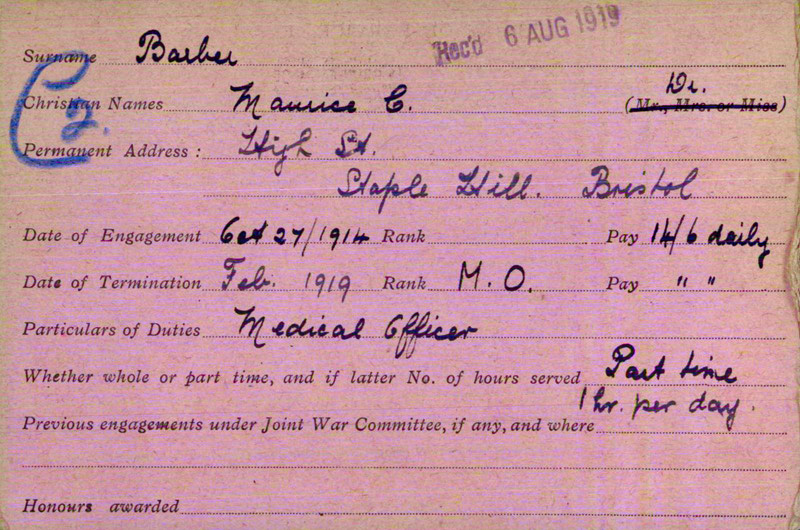 Rec'd 6 AUG 1919
Surname Barber
Christian Names Maurice C. Dr. (Mr., Mrs. or Miss)
C2.
Permanent Address: High St.
Staple Hill. Bristol
Date of Engagement Oct 27/1914 Rank Pay 14/6 daily
Date of Termination Feb. 1919 Rank M.O. Pay " "
Particulars of Duties Medical Officer
Whether whole or part time, and if latter No. of hours served Part time
1 hr. per day.
Previous engagements under Joint War Committee, if any, and where
Honours awarded